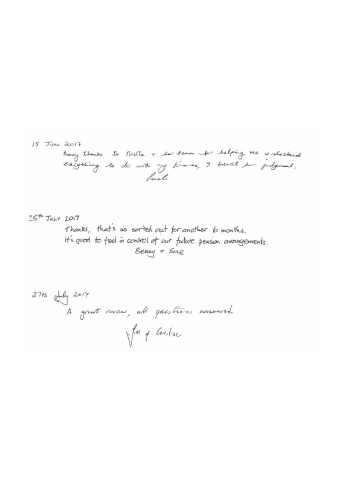 15 June 2017
Many thanks to & her team for helping me understand
everything to do with my finances, I trust her judgement.
25th July 2017
Thanks, that's us sorted out for another 6 months.
It's good to feel in control of our future pension arrangements.
Benny + Sue
27th July 2017
A great review, all questions answered
&